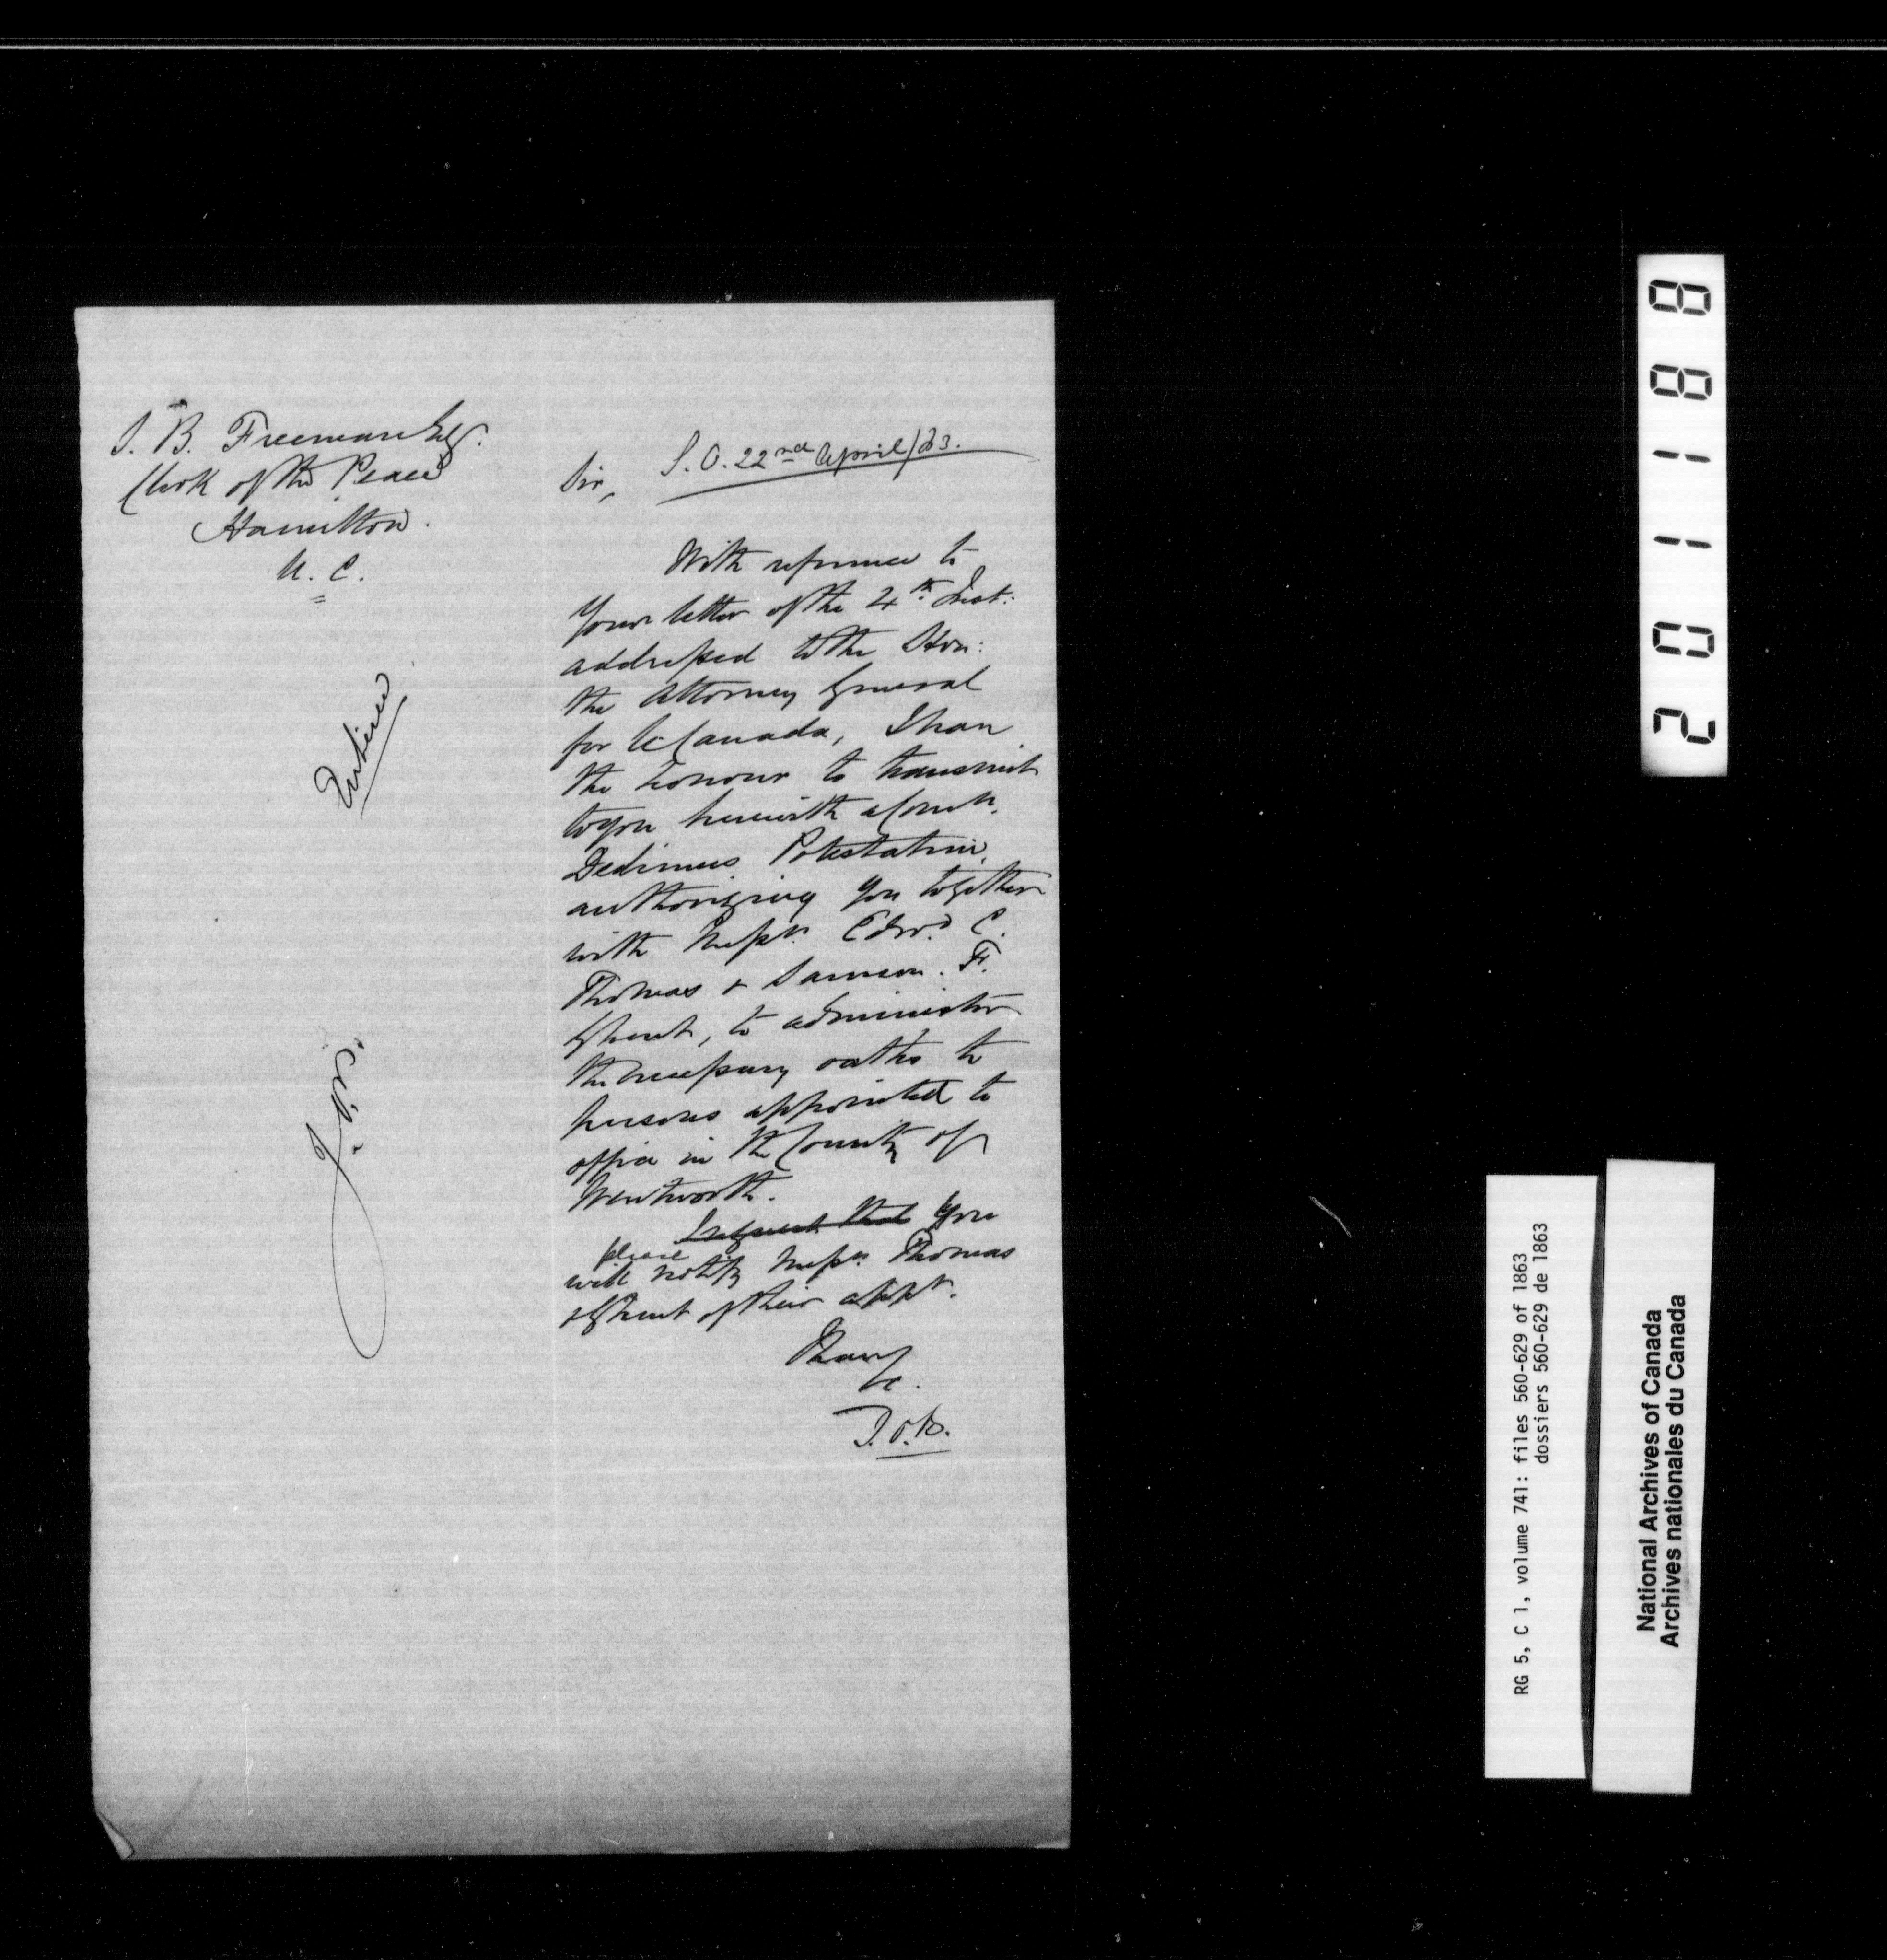 S. B. Freeman Esq.
Clerk of the Peace
Hamilton.
U. C.
Entered
S. O. 22nd April/63.
Sir,
With reference to
Your letter of the 4th Inst:
addressed to the Hon:
the Attorney General
for U Canada, I have
the honour to transmit
to you herewith a Comn.
Dedimus Potestatum,
authorizing you together
with Messrs. Edwd. C.
Thomas & Samson. F.
Ghent, to administer
the necessary oaths to
persons appointed to
office in the County of
Wentworth.
I request that You
please
will notify Messrs. Thomas
& Ghent of their appt.
I have
&c.
201188
RG 5, C 1, volume 741: files 560-629 of 1863
dossiers 560-629 de 1863
National Archives of Canada
Archives nationales du Canada